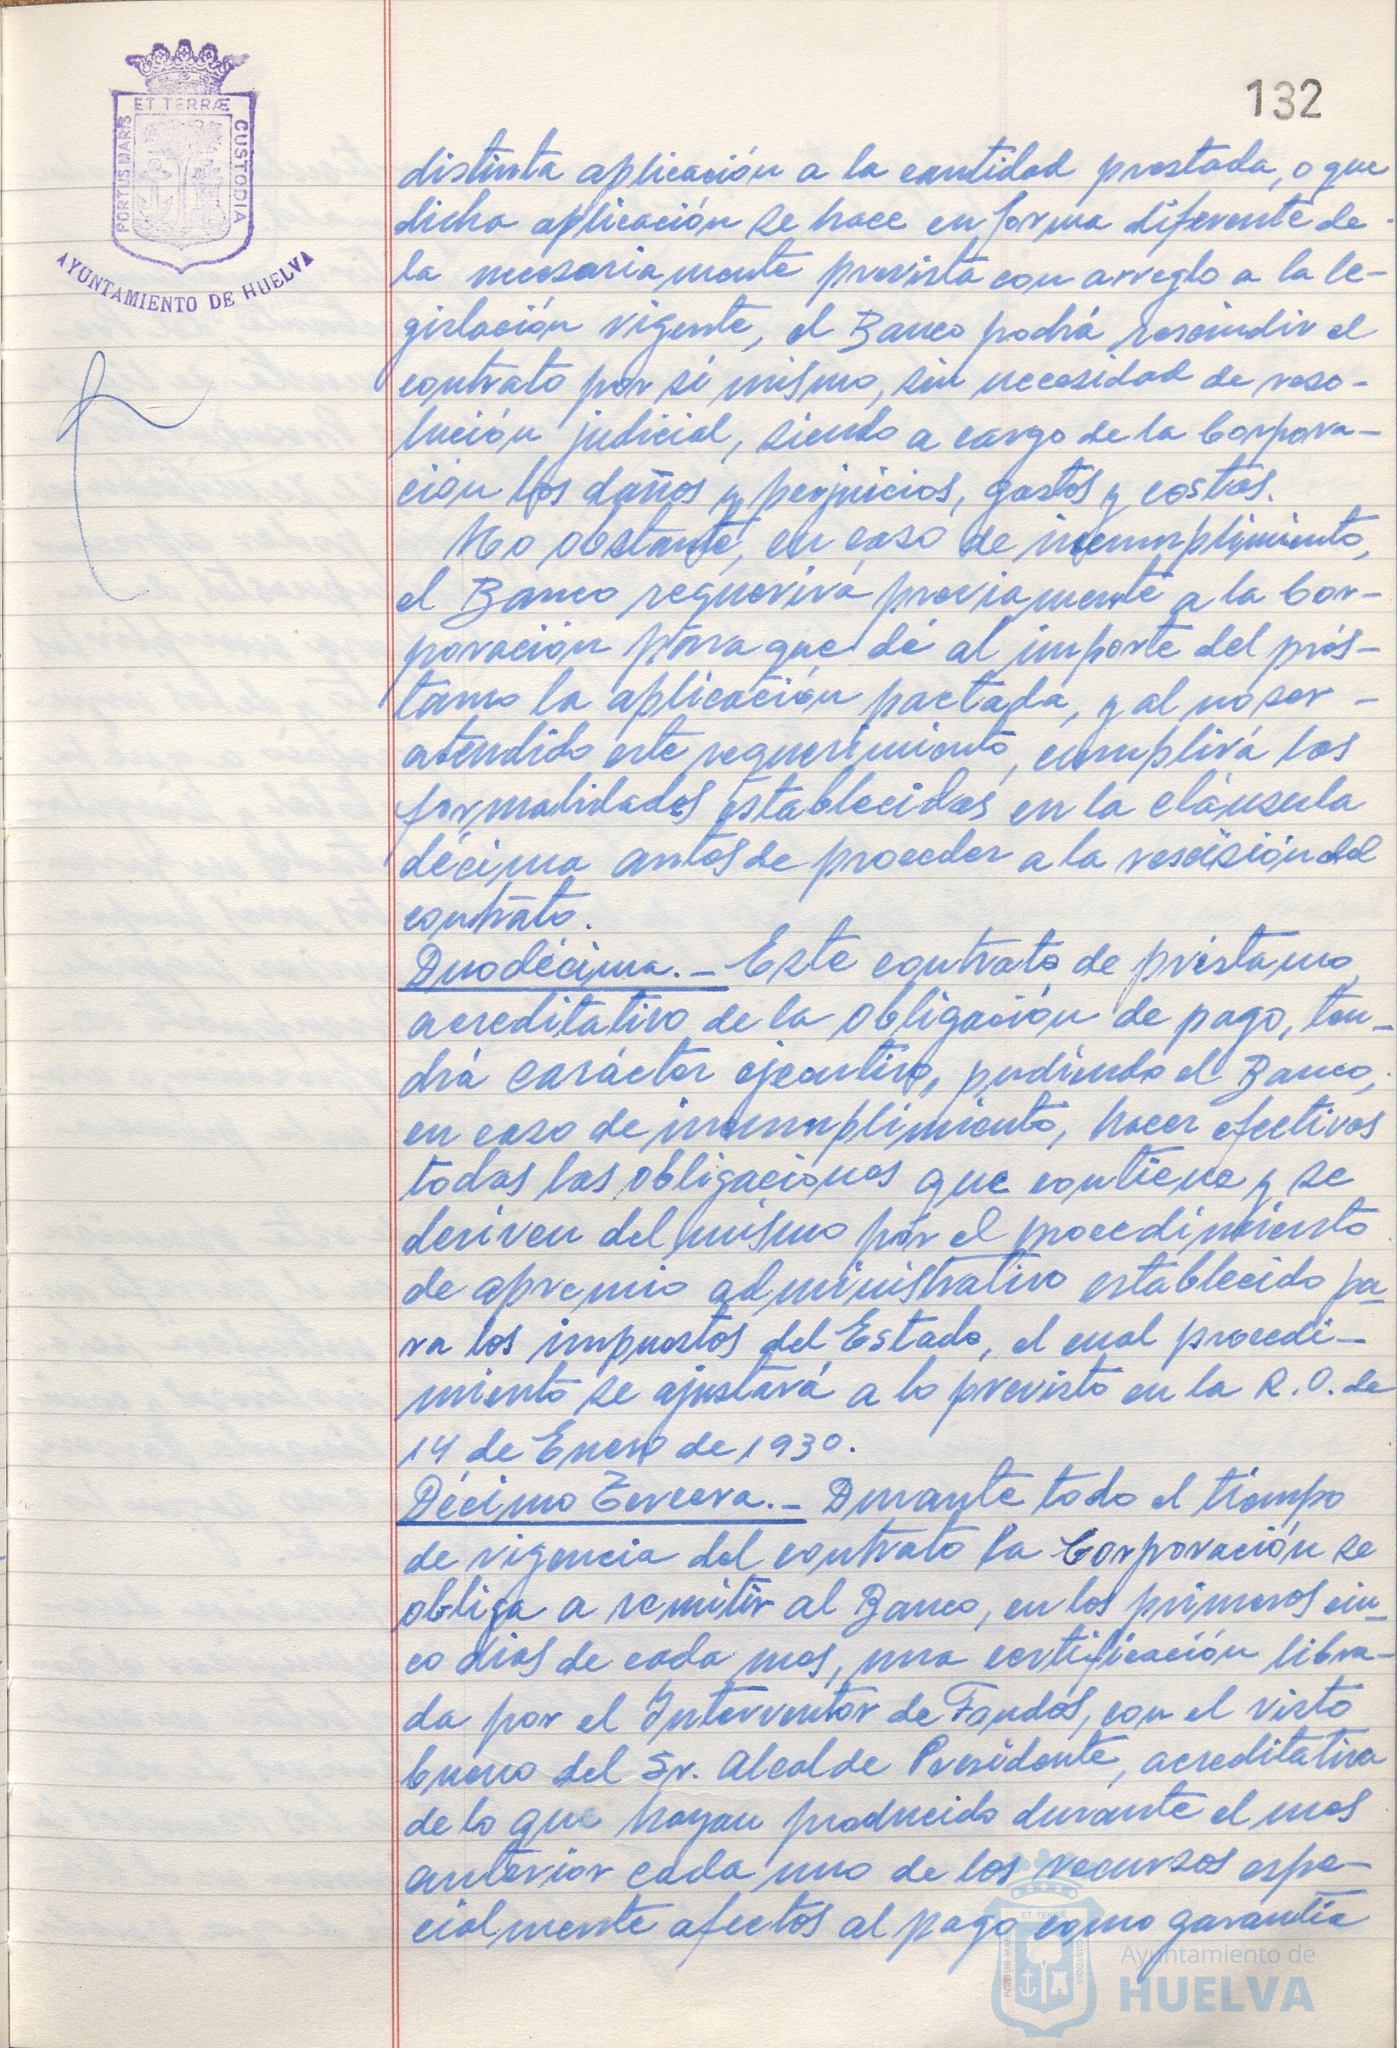 132
ET TERRÆ
PORTUS MARIS
CUSTODIA
AYUNTAMIENTO DE HUELVA
distinta aplicación a la cantidad prestada, o que
dicha aplicación se hace en forma diferente de
la necesariamente prevista con arreglo a la le-
gislación vigente, el Banco podrá rescindir el
contrato por sí mismo, sin necesidad de reso-
lución judicial, siendo a cargo de la Corpora-
ción los daños y perjuicios, gastos y costas.
No obstante, en caso de incumplimiento,
el Banco requerirá previamente a la Cor-
poración para que dé al importe del prés-
tamo la aplicación pactada, y al no ser -
atendido este requerimiento, cumplirá las
formalidades establecidas en la cláusula
décima antes de proceder a la rescisión del
contrato.
Duodécima.- Este contrato de préstamo,
acreditativo de la obligación de pago, ten-
drá carácter ejecutivo, pudiendo el Banco,
en caso de incumplimiento, hacer efectivas
todas las obligaciones que contiene y se
deriven del mismo por el procedimiento
de apremio administrativo establecido pa-
ra los impuestos del Estado, el cual procedi-
miento se ajustará a lo previsto en la R.O. de
14 de Enero de 1930.
Décimo Tercera.- Durante todo el tiempo
de vigencia del contrato la Corporación se
obliga a remitir al Banco, en los primeros cin-
co días de cada mes, una certificación libra-
da por el Interventor de Fondos, con el visto
bueno del Sr. Alcalde Presidente, acreditativa
de lo que hayan producido durante el mes
anterior cada uno de los recursos espe-
cialmente afectos al pago como garantía
Ayuntamiento de
HUELVA